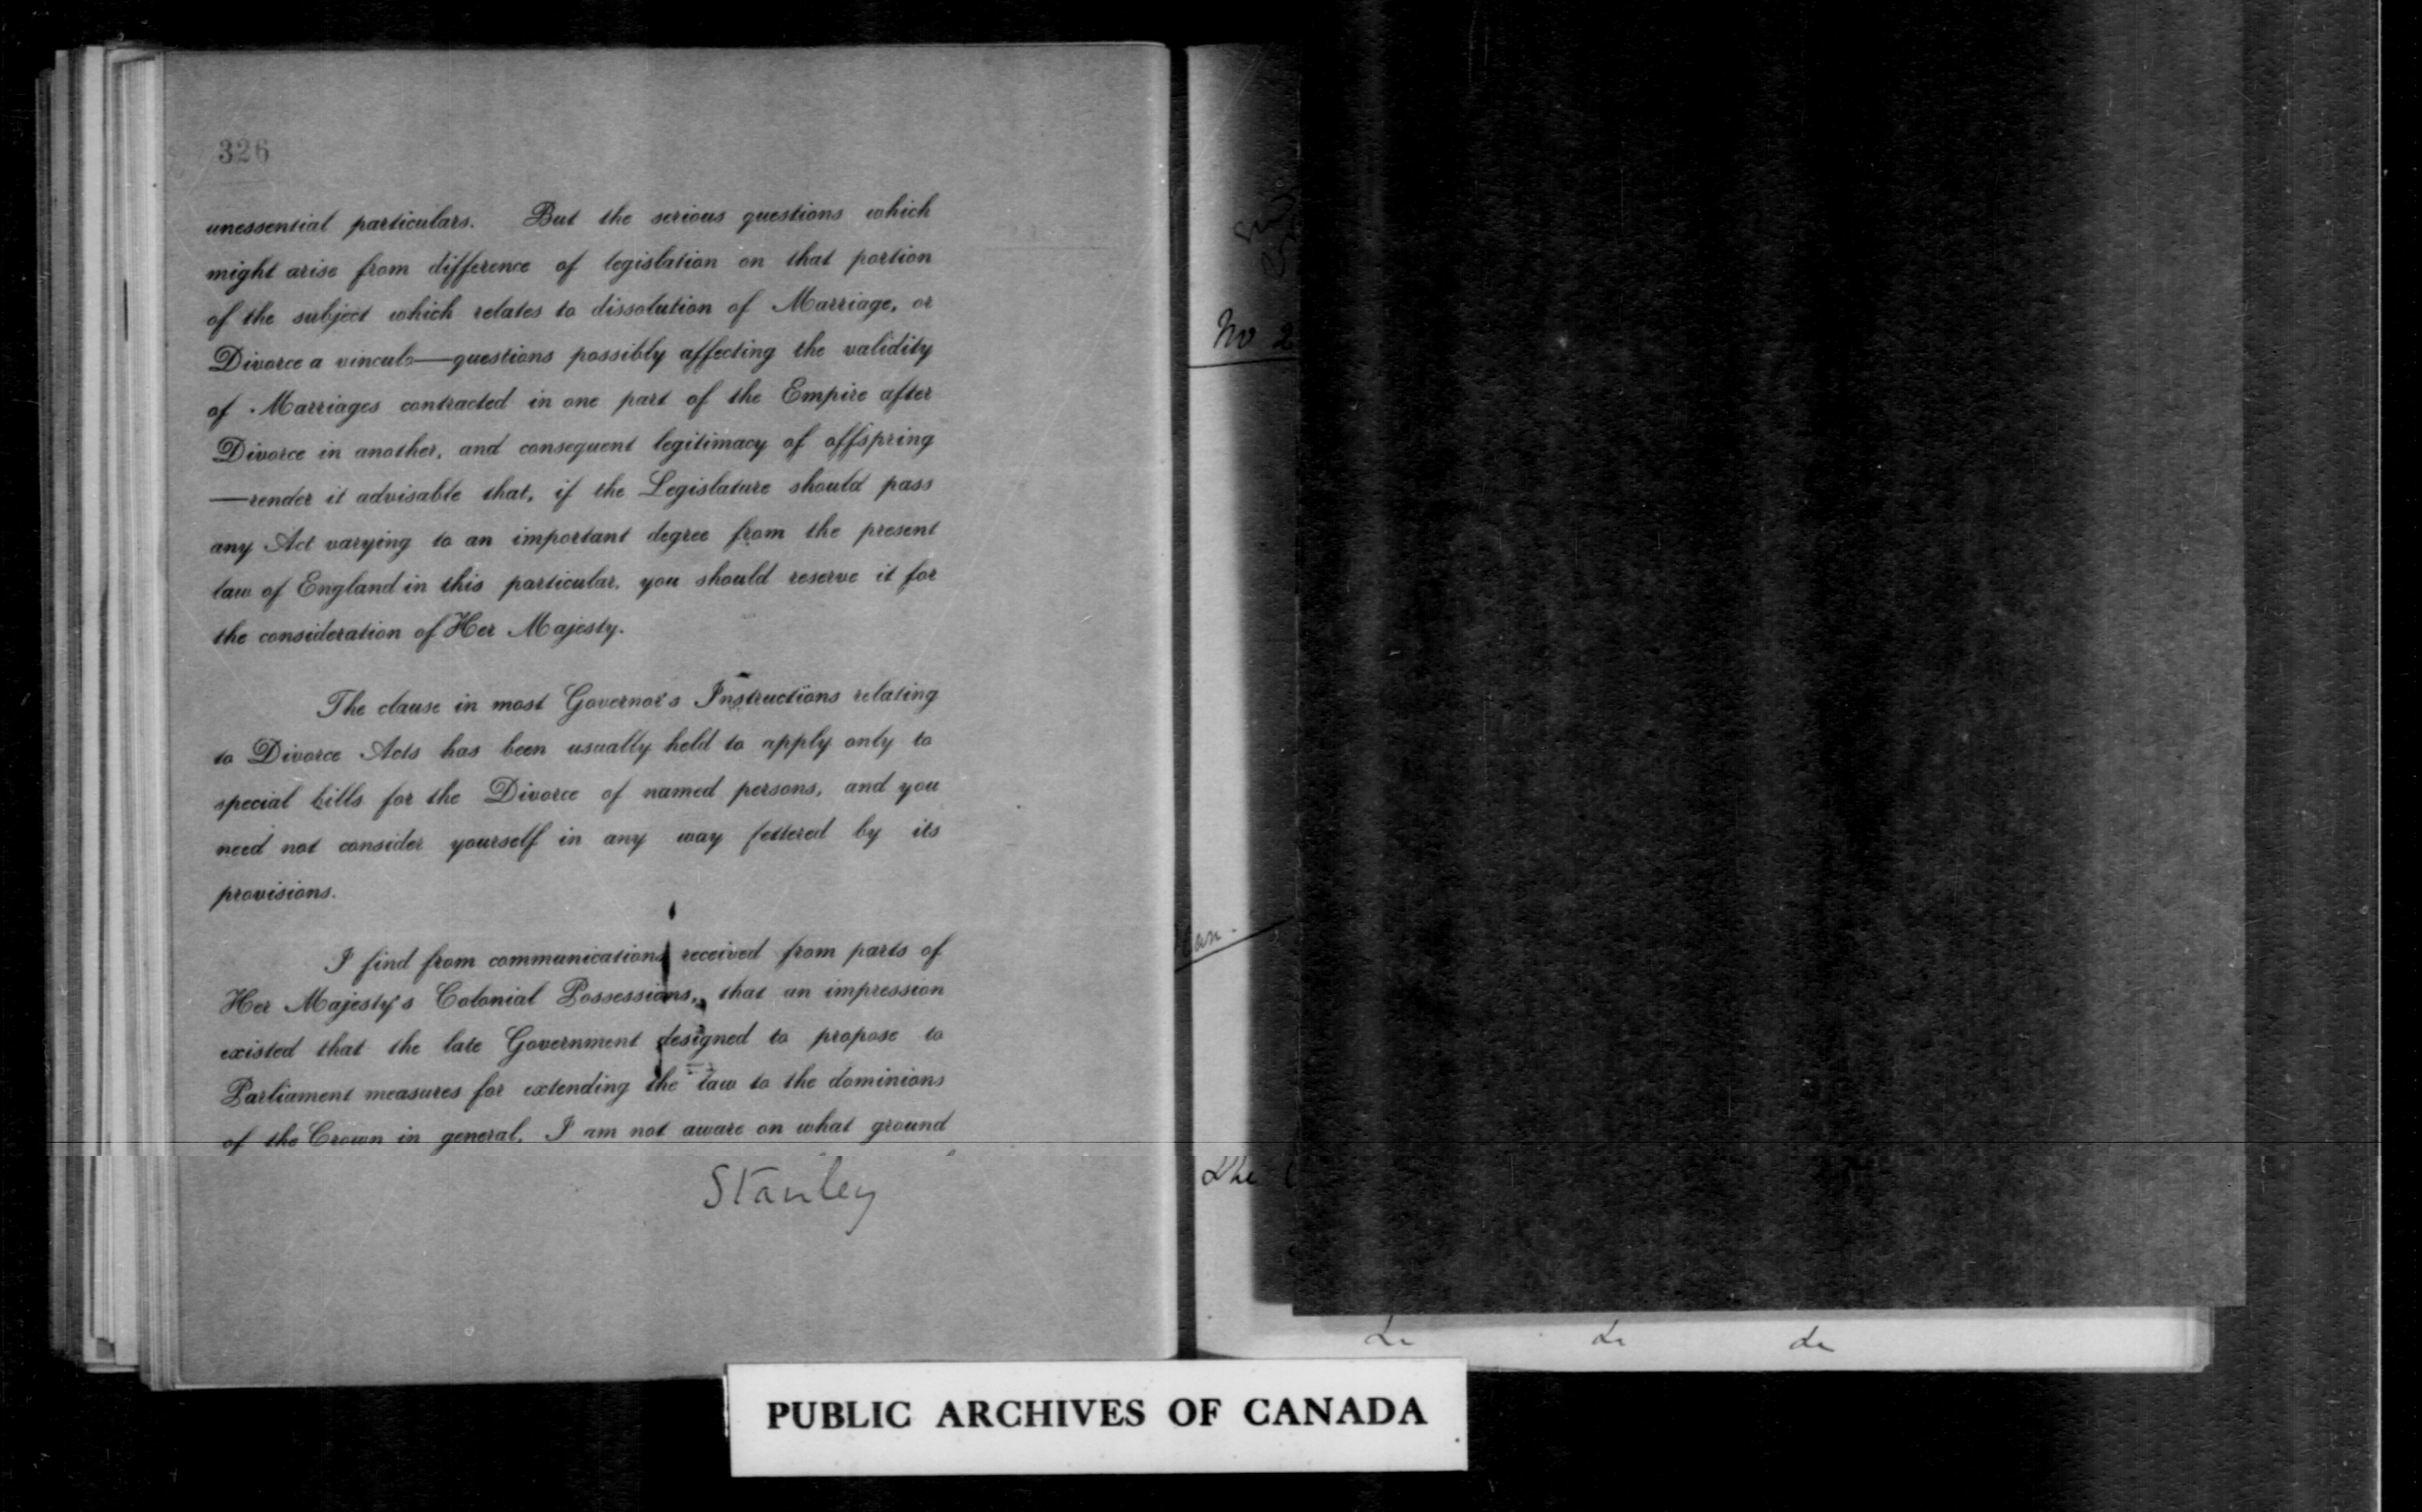 326
unessential particulars. But the serious questions which
might arise from difference of legislation on that portion
of the subject which relates to dissolution of Marriage, or
Divorce a vinculo—questions possibly affecting the validity
of Marriages contracted in one part of the Empire after
Divorce in another, and consequent legitimacy of offspring
—render it advisable that, if the Legislature should pass
any Act varying to an important degree from the present
law of England in this particular, you should reserve it for
the consideration of Her Majesty.
The clause in most Governor's Instructions relating
to Divorce Acts has been usually held to apply only to
special bills for the Divorce of named persons, and you
need not consider yourself in any way fettered by its
provisions.
I find from communications received from parts of
Her Majesty's Colonial Possessions, that an impression
existed that the late Government designed to propose to
Parliament measures for extending the law to the dominions
of the Crown in general. I am not aware on what ground
Stanley
No 2
The
PUBLIC ARCHIVES OF CANADA